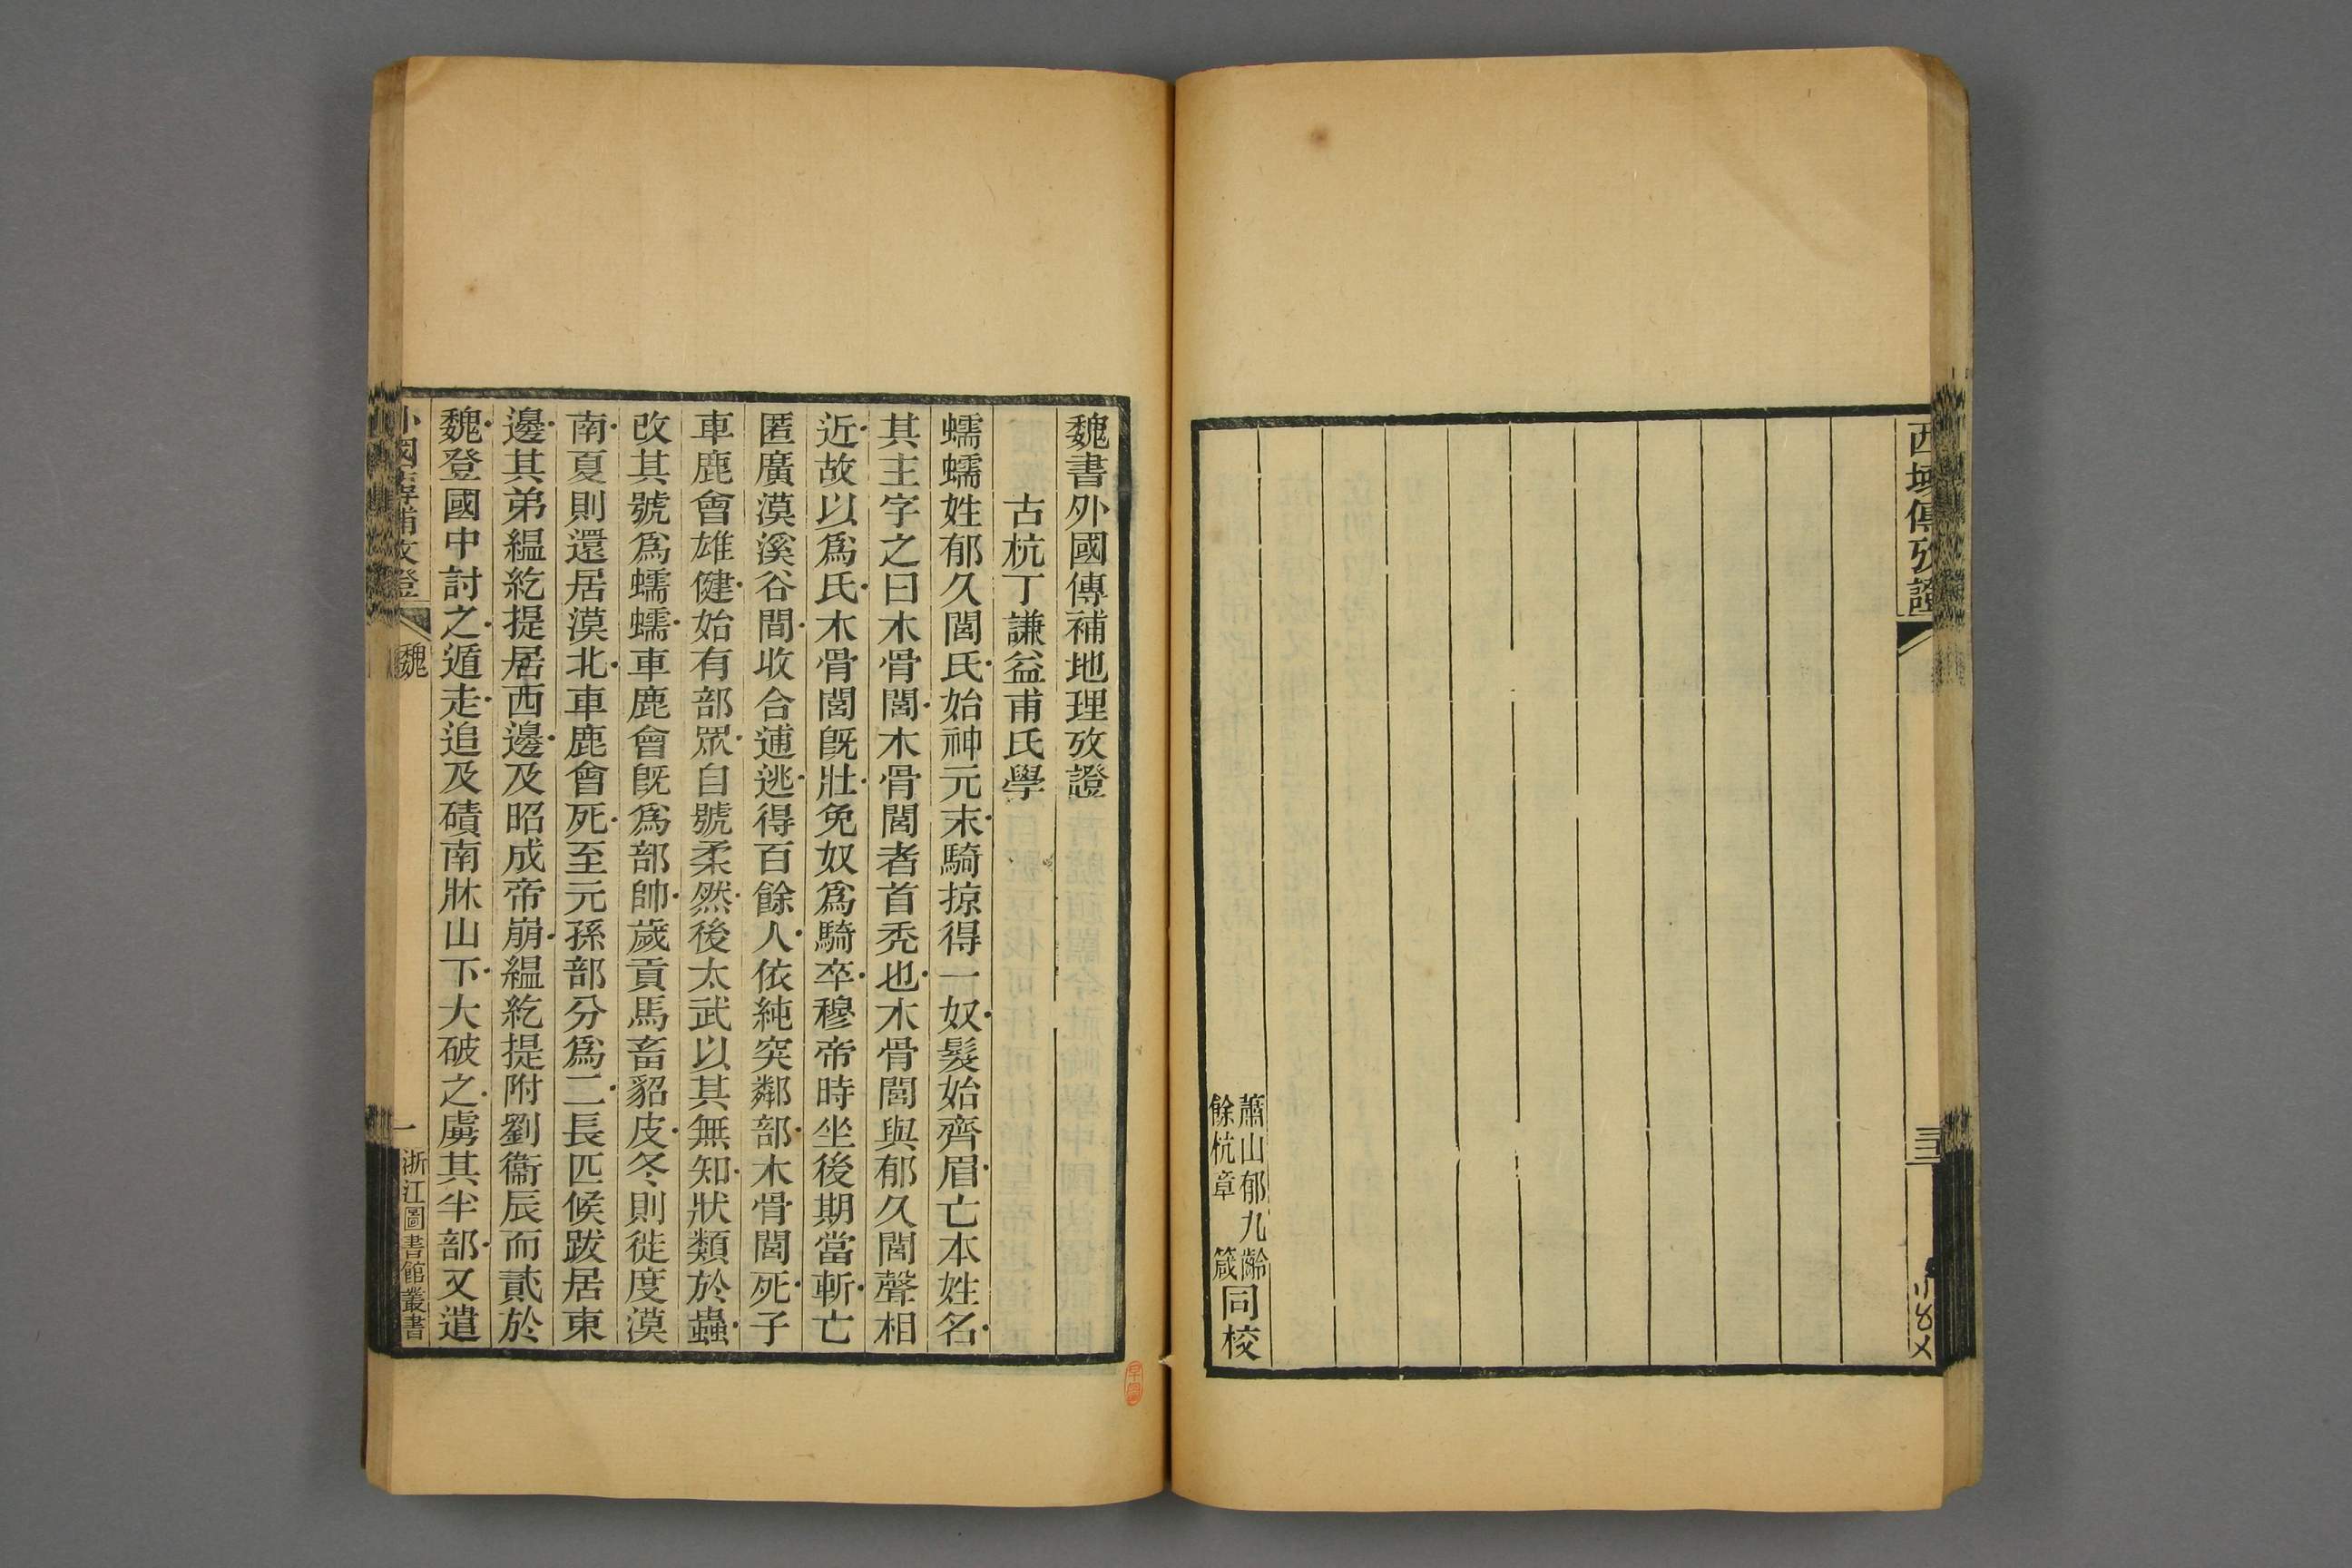 西域傳攷證
三二
蕭山郁九齡
餘杭章箴
同校
魏書外國傳補地理攷證
古杭丁謙益甫氏學
蠕蠕姓郁久閭氏始神元末騎掠得一奴髮始齊眉亡本姓名
其主字之曰木骨閭木骨閭者首禿也木骨閭與郁久閭聲相
近故以爲氏木骨閭旣壯免奴爲騎卒穆帝時坐後期當斬亡
匿廣漠溪谷間收合逋逃得百餘人依純突鄰部木骨閭死子
車鹿會雄健始有部眾自號柔然後太武以其無知狀類於蟲
改其號爲蠕蠕車鹿會旣爲部帥歲貢馬畜貂皮冬則徙度漠
南夏則還居漠北車鹿會死至元孫部分爲二長匹候跋居東
邊其弟縕紇提居西邊及昭成帝崩縕紇提附劉衞辰而貳於
魏登國中討之遁走追及磧南牀山下大破之虜其半部又遣
外國傳補攷證
魏
一
浙江圖書館叢書